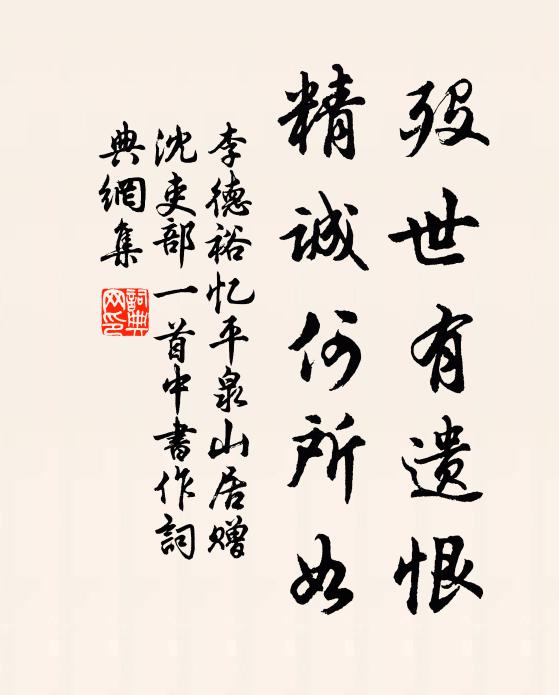 殁世有遗恨
精诚何所如
李德裕忆平泉山居赠
沈吏部一首中書作詞
典網集
詞典网印